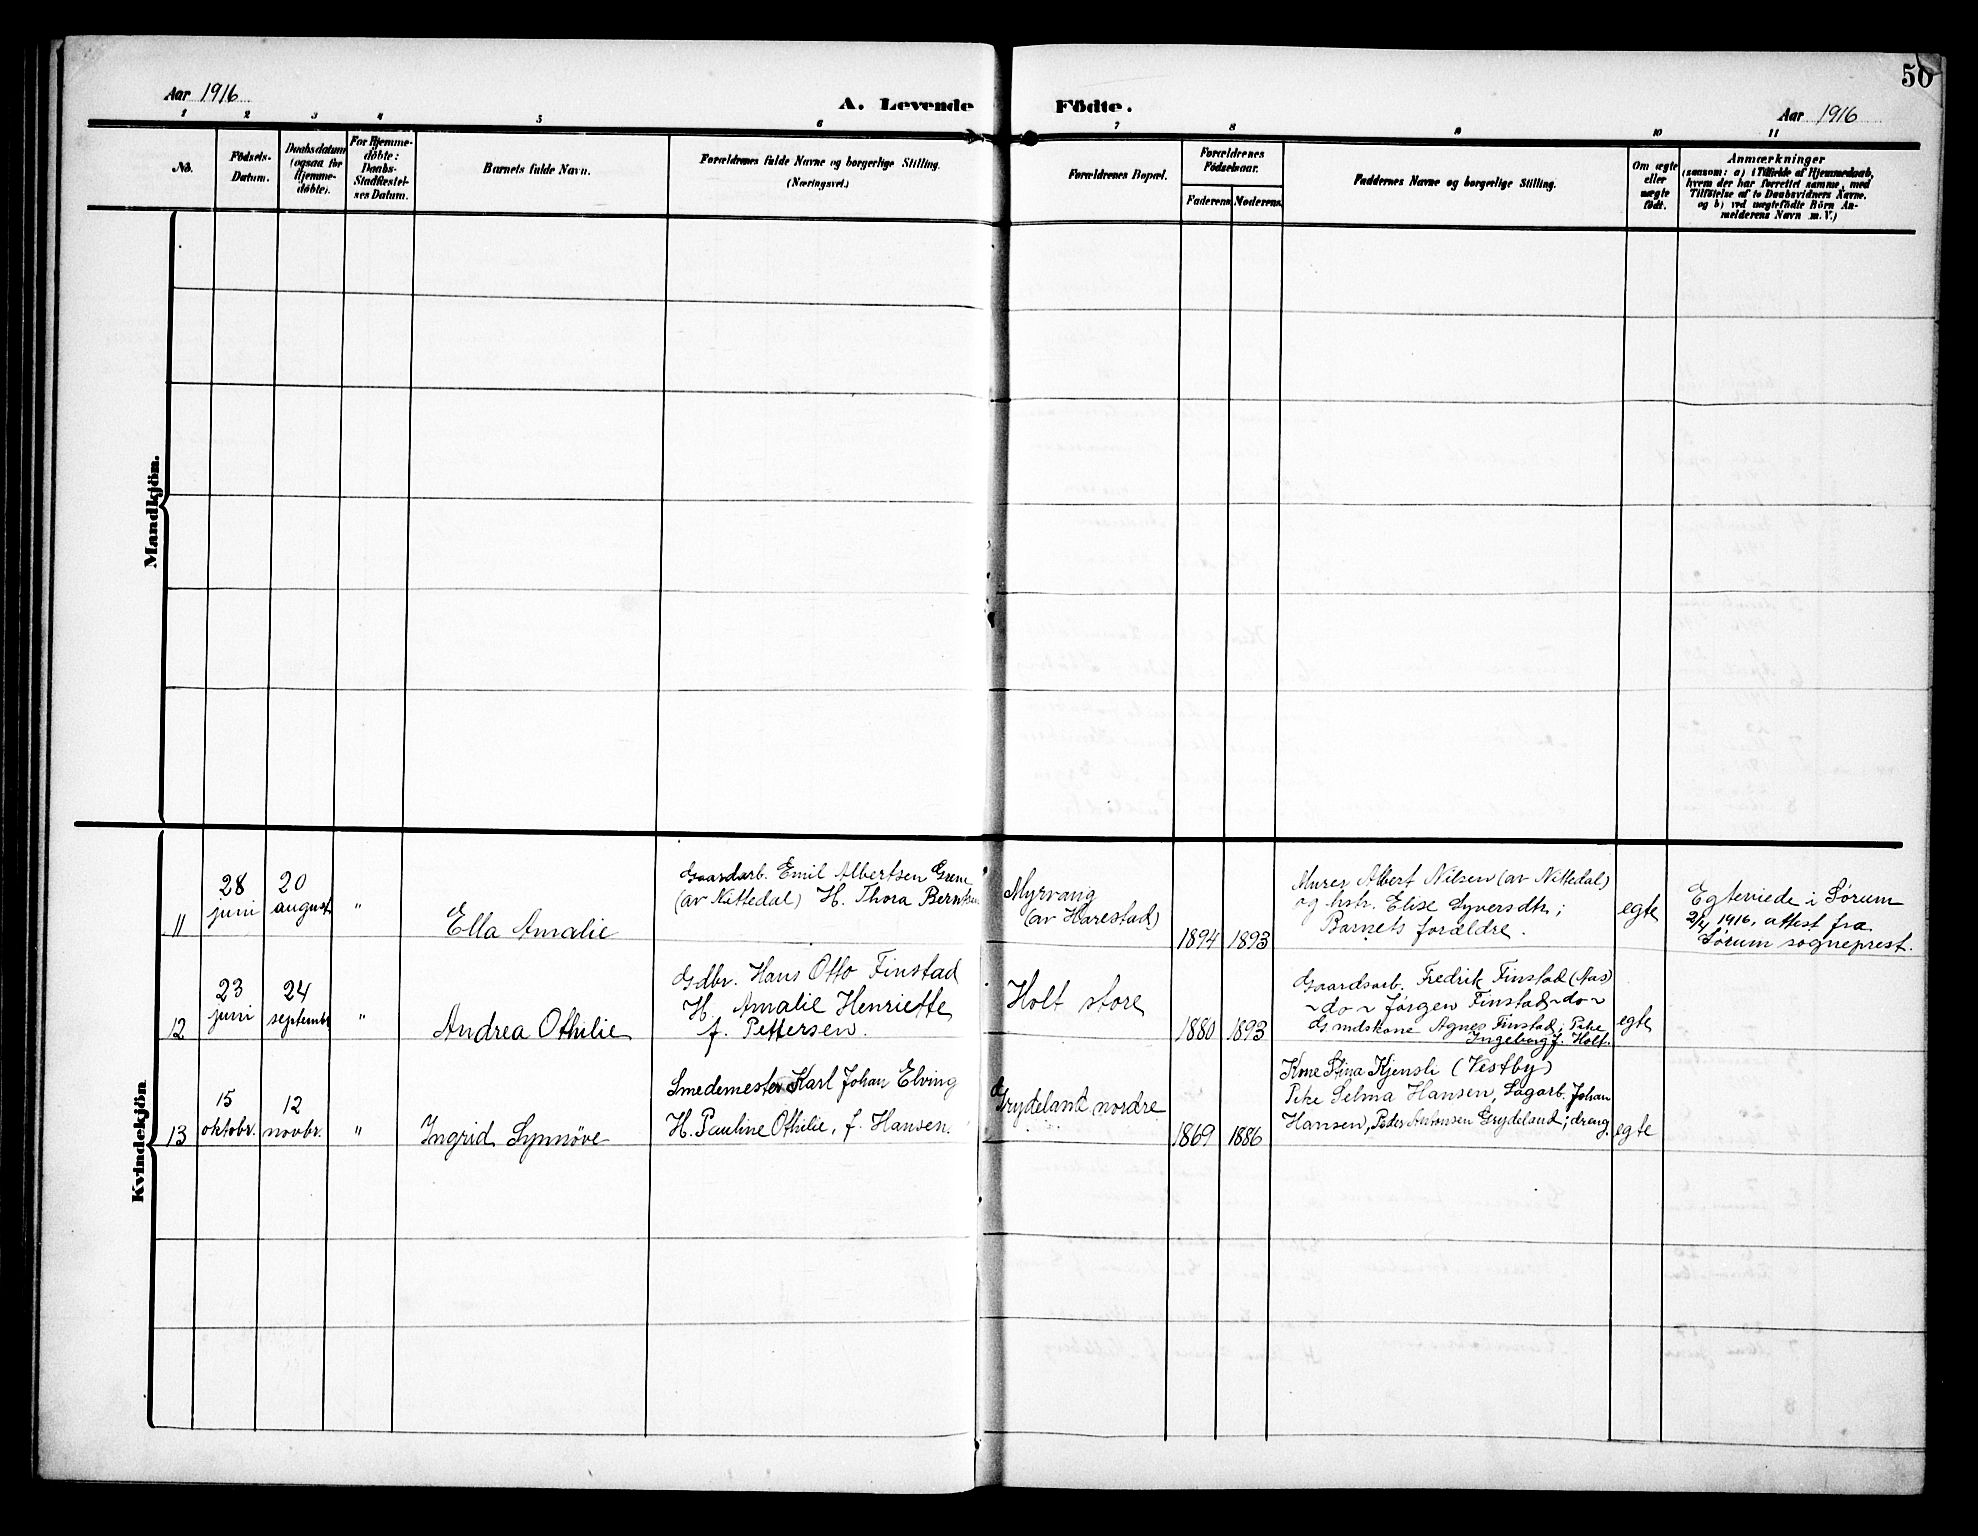 50
Aar 1916
A. Levende Födte.
Aar 1916
1 2 3 4 5 6 7 8 9 10 11
No.
Födsels-
Datum.
Daabsdatum
(ogsaa for
Hjemme-
döbte).
For Hjemme-
döbte:
Daabs-
Stadfæstel-
ses Datum.
Barnets fulde Navn.
Forældrenes fulde Navne og borgerlige Stilling.
(Næringsvei.)
Forældrenes Bopæl.
Forældrenes
Födselsaar.
Faderens Moderens.
Faddernes Navne og borgerlige Stilling.
Om ægte
eller
uægte
födt.
Anmærkninger
(saasom: a) i Tilfælde af Hjemmedaab,
hvem der har forrettet samme, med
Tilföielse af to Daabsvidners Navne.
og b) ved uægtefödte Börn An-
melderens Navn m. V.)
Mandkjön.
Kvindekjön
11
28
juni
20
august
"
Ella Amalie
Gaardarb. Emil Albertsen
(av Nittedal) H. Thora Berntsen
Myrvang
(av Harestad)
1894 1893
Murer Albert Nilsen (av Nittedal)
og hstr. Elise Syversdtr.;
Barnets forældre.
egte
Egteviede i Sørum
2/4 1916, attest fra
Sørum sogneprest.
12
23
juni
24
septembr
"
Andrea Othilie
Gdbr. Hans Otto Finstad
H. Amalie Henriette
f. Pettersen.
Holt store
1880 1893
Gaardsarb. Fredrik Finstad (Aas)
~do~ Jørgen Finstad ~do~
Gmdskone Agnes Finstad; Pike
Ingeborg f. Holt.
egte
13
15
oktobr.
12
novbr.
"
Ingrid Synnöve
Smedemester Karl Johan Elving
H. Pauline Othilie, f. Hansen.
Grydeland nordre
1869 1886
Kone Stina Kjensli (Vestby)
Pike Selma Hansen, Sagarb. Johan
Hansen, Peder Antonsen Grydeland; dreng.
egte